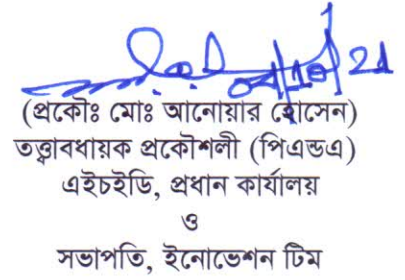 (প্রকৌঃ মোঃ আনোয়ার হোসেন)
তত্ত্বাবধায়ক প্রকৌশলী (পিএন্ডএ)
এইচইডি, প্রধান কার্যালয়
ও
সভাপতি, ইনোভেশন টিম